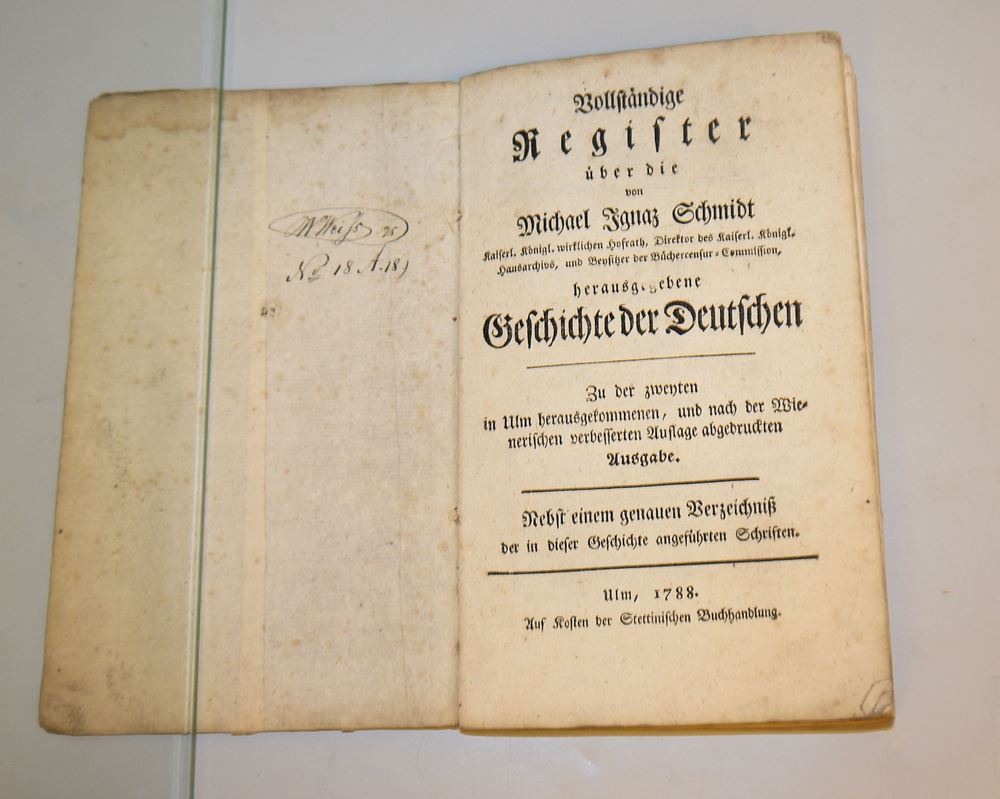 W Weiss 25
No 18 A. 18)
Vollständige
Regiſter
über die
von
Michael Ignaz Schmidt
Kaiſerl. Königl. wirklichen Hofrath, Direktor des Kaiſerl. Königl.
Hausarchivs, und Beyſitzer der Büchercenſur-Commiſſion,
herausgegebene
Geſchichte der Deutſchen
Zu der zweyten
in Ulm herausgekommenen, und nach der Wie-
neriſchen verbeſſerten Auflage abgedruckten
Ausgabe.
Nebſt einem genauen Verzeichniß
der in dieſer Geſchichte angeführten Schriften.
Ulm, 1788.
Auf Koſten der Stettiniſchen Buchhandlung.